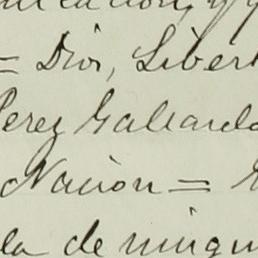 = Dios, Libert
Perez Gallardo
Nación =
la de ningu